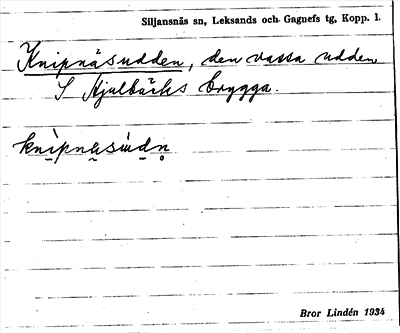 Siljansnäs sn, Leksands och Gagnefs tg, Kopp. l.
Knipnäsudden, den vassa udden
S Hjulbäcks brygga.
knìpnäsùdn̥
Bror Lindén 1934